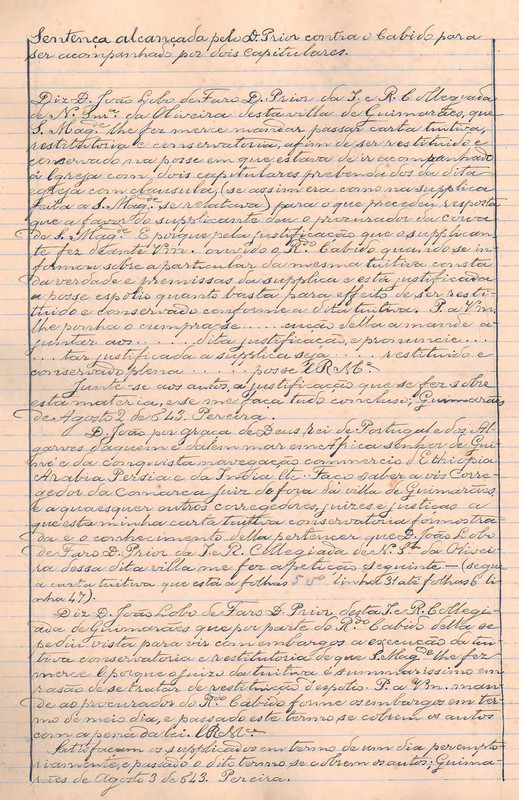 Sentença alcançada pelo D. Prior contra o Cabido para
ser acompanhado por dois capitulares.
Diz D. João Lobo de Faro D. Prior da I. e R. Collegiada
de N. Snrª. da Oliveira desta villa de Guimarães, que
S. Magde. lhe fez merce mandar passar carta tuitiva,
restitutoria e conservatoria, afim de ser restituido e
conservado na posse em que estava de ir acompanhado
á Igreja com dois capitulares prebendados da dita
egreja com clausula, (se assim era como na supplica
feita a S. Magde. se relatava) para o que precedeu resposta
que a favor do supplicante deu o procurador da corôa
de S. Magde. E porque pela justificação que o supplican-
te fez deante Vm. ouvido o R.do Cabido quando se in-
formou sobre a particular da mesma tuitiva consta
da verdade e premissas da supplica e está justificada
a posse e spolio quanto basta para effeito de ser resti-
tuido e conservado conforme a dita tuitiva. P. a Vm.
lhe ponha o cumpra-se ..... cução della a mande a-
juntar aos ...... dita justificação, e pronuncie....
... tar justificada a supplica seja .... restituido e
conservado plena ...... posse E R Mce.
Junte-se aos autos, a justificação que se fez sobre
esta materia, e se me faça tudo concluso; Guimarães
de Agosto 2 de 643. Pereira.
D. João por graça de Deus, rei de Portugal e dos Al-
garves daquem e dalem mar em Africa senhor de Gui-
né e da conquista navegação commercio d'Ethiopia
Arabia Persia e da India etc. Faço saber a vós Corre-
gedor da Comarca juiz de fóra da villa de Guimarães,
e a quaesquer outros corregedores juizes e justiças a
que esta minha carta tuitiva conservatoria fôr mostra-
da e o conhecimento della pertencer que D. João Lobo
de Faro D. Prior da I. e R. Collegiada de N. Srª. da Olivei-
ra dessa dita villa me fez a petição seguinte — (segue
a carta tuitiva que está a folhas 5 vº linha 31 até folhas 6 li-
nha 47).
Diz D. João Lobo de Faro D. Prior desta I. e R. Collegi-
ada de Guimarães que por parte do R.do Cabido della se
pediu vista para vir com embargos a execução da tui-
tiva conservatoria e restitutoria de que S. Magde. lhe fez
merce E porque o juizo da tuitiva é summarissimo em
rasão de se tratar de restituição d'espolio. P. a Vm. man-
de ao procurador do R.do Cabido forme os embargos em ter-
mo de meio dia, e passado este termo se cobrem os autos
com a pena da lei. E R Mce.
Satisfaçam os supplicados em termo de um dia perempto-
riamente, e passado o dito termo se cobrem os autos; Guima-
rães de Agosto 3 de 643. Pereira.